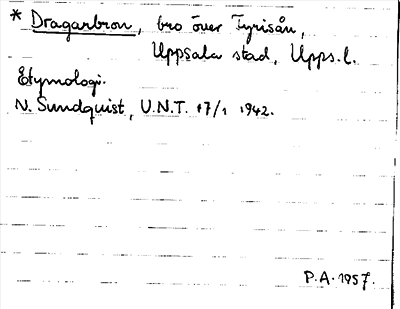 * Dragarbron, bro över Fyrisån,
Uppsala stad, Upps. l.
Etymologi.
N. Sundquist, U.N.T. 17/1 1942.
P.A. 1957.